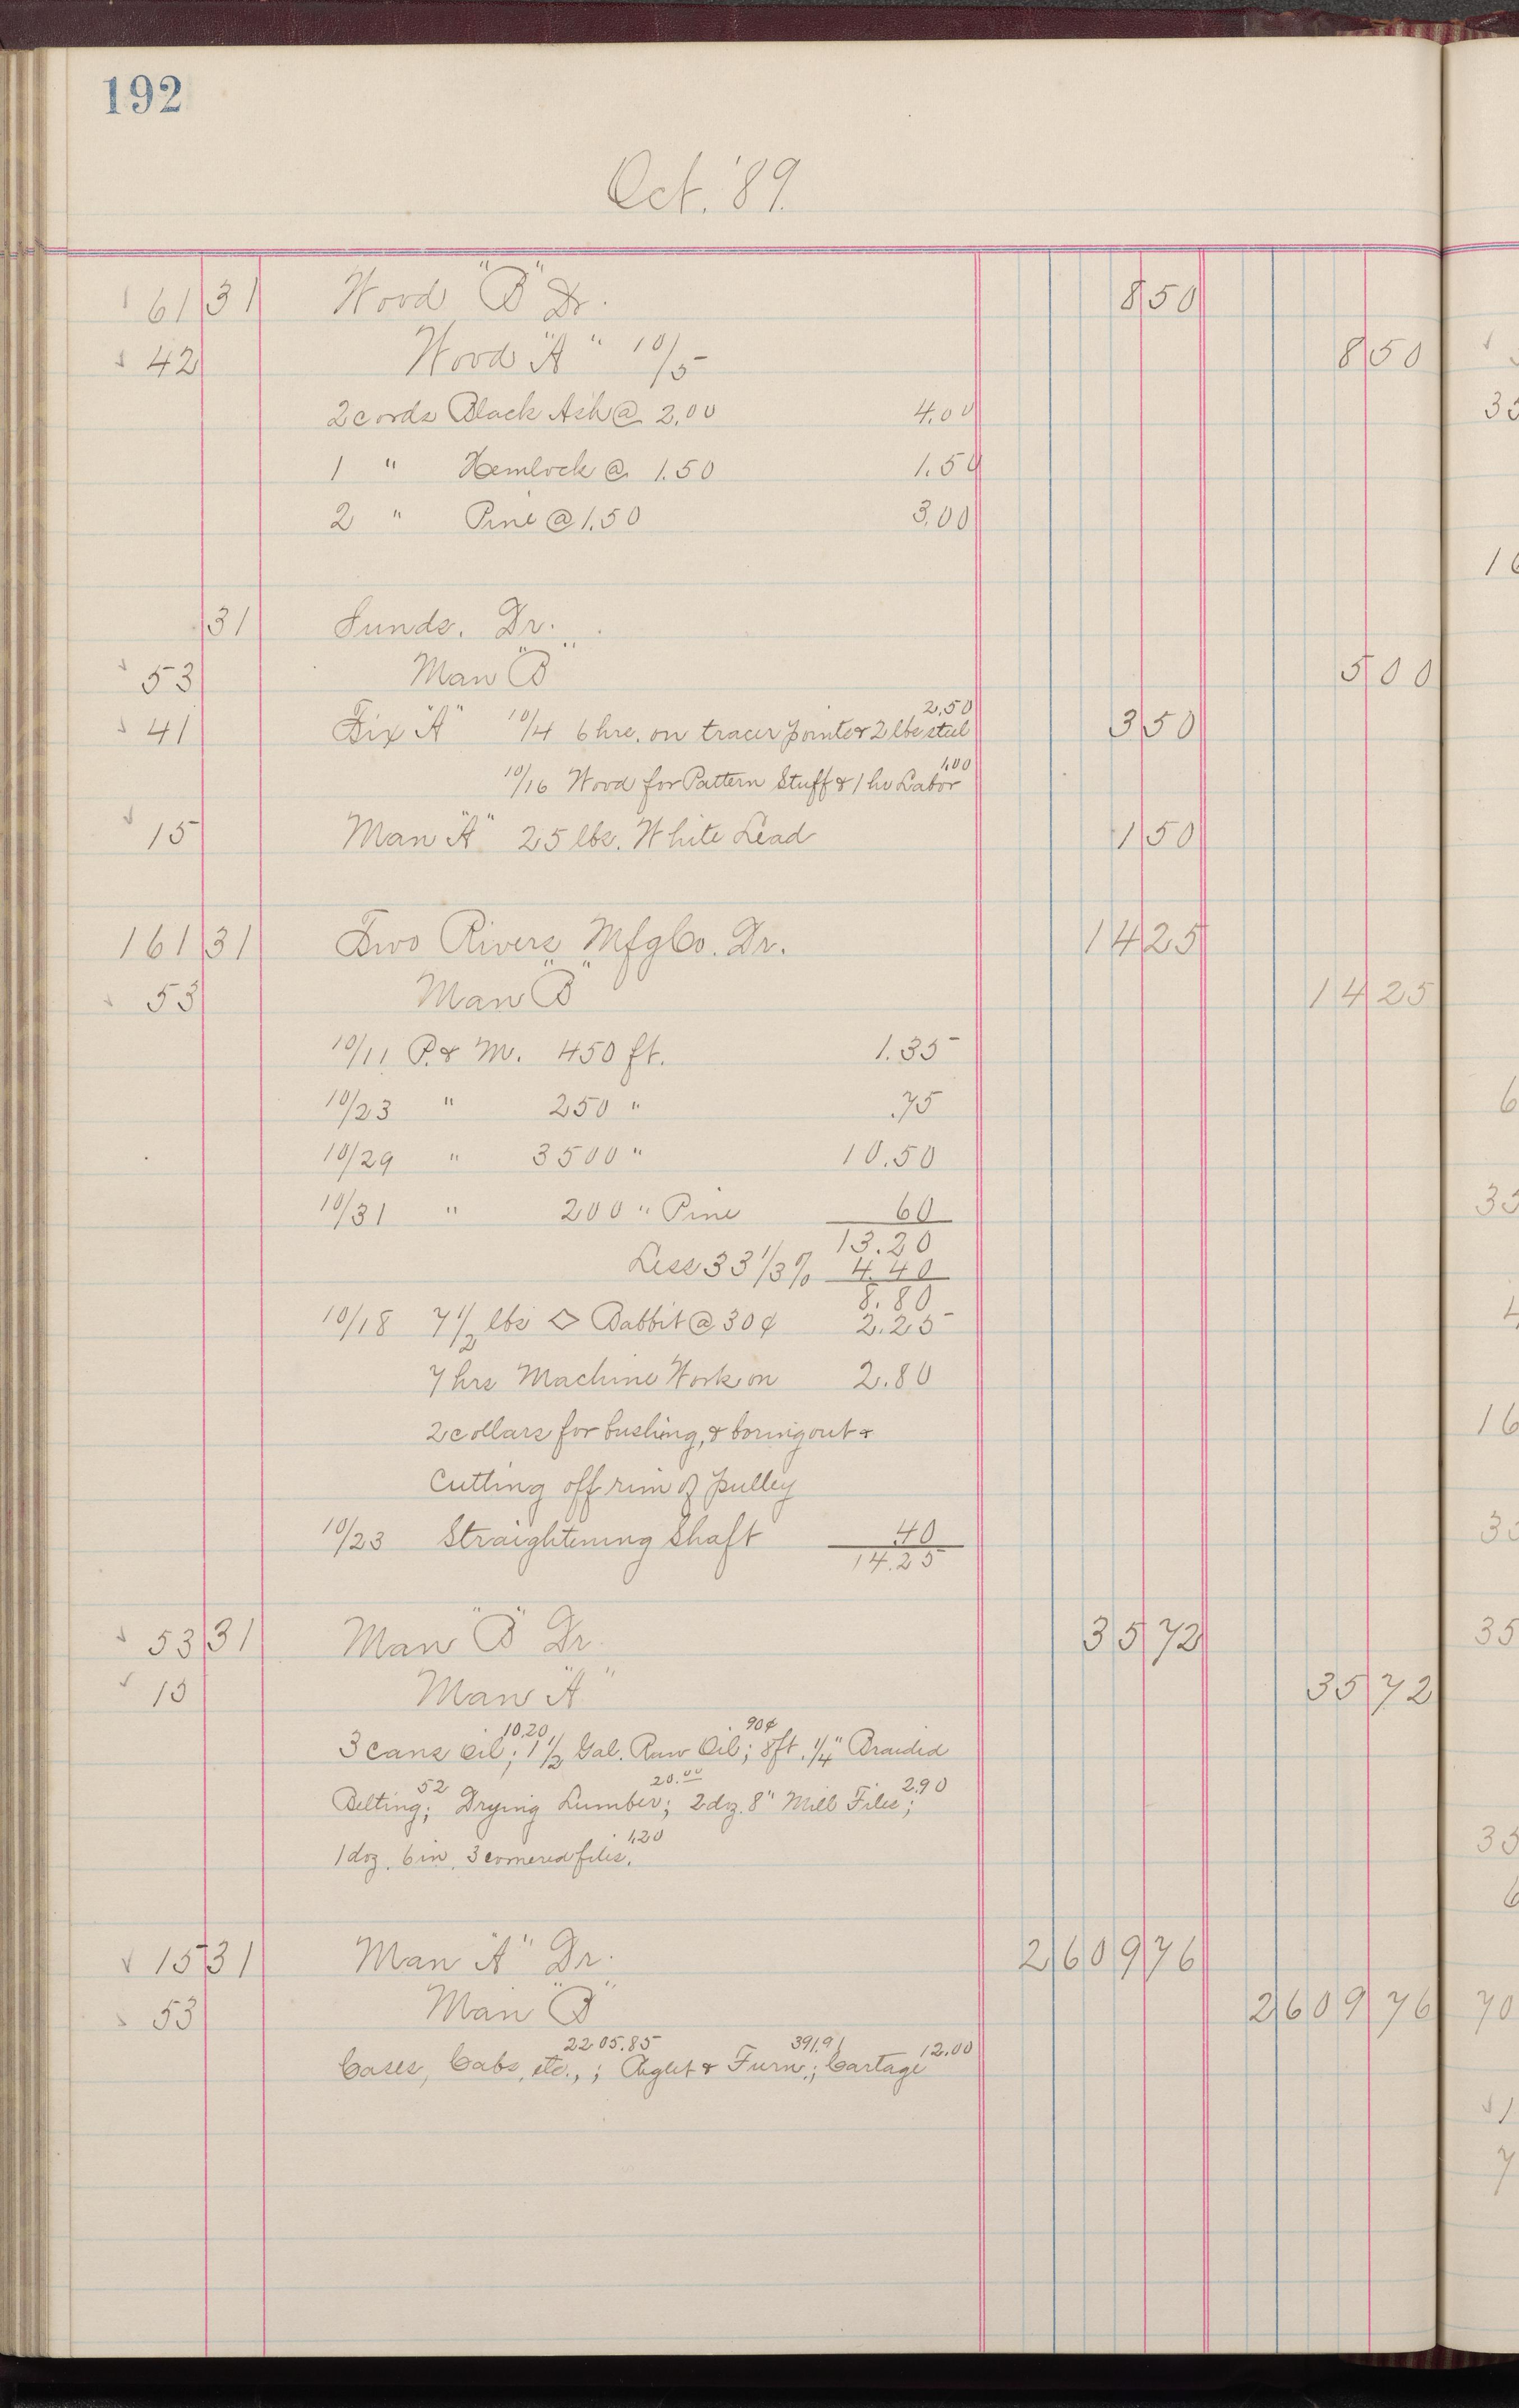 192
Oct. '89.
61 31 Wood "B" Dr. 8 50
42 Wood "A" 10/5 8 50
2 cords Black Ash @ 2.00 4.00
1 " Hemlock @ 1.50 1.50
2 " Pine @ 1.50 3.00
31 Sunds. Dr.
53 Man "B" 5 00
2.50
41 Fix "A" 10/4 6 hrs. on tracer points & 2 lbs steel 3 50
1.00
10/16 Wood for Pattern Stuff & 1 hr Labor
15 Man "A" 25 lbs. White Lead 1 50
161 31 Two Rivers Mfg Co. Dr. 14 25
53 Man "B" 14 25
10/11 P. & M. 450 ft. 1.35
10/23 " 250 " .75
10/29 " 3500 " 10.50
10/31 " 200 " Pine 60
13.20
Less 33 1/3 % 4.40
8.80
10/18 7 1/2 lbs ◇ Babbit @ 30¢ 2.25
7 hrs Machine Work on 2.80
2 collars for bushing, & boring out &
Cutting off rim of pulley
10/23 Straightening Shaft 40
14.25
53 31 Man "B" Dr. 35 72
15 Man "A" 35 72
10.20 90¢
3 cans oil; 1 1/2 Gal. Raw Oil; 8 ft. 1/4" Braided
52 20.00 2.90
Belting; Drying Lumber; 2 dz. 8" Mill Files;
1.20
1 doz. 6 in. 3 cornered files.
15 31 Man "A" Dr. 2609 76
53 Man "B" 2609 76
2205.85 391.91 12.00
Cases, Cabs, etc.,; Reglet & Furn.; Cartage